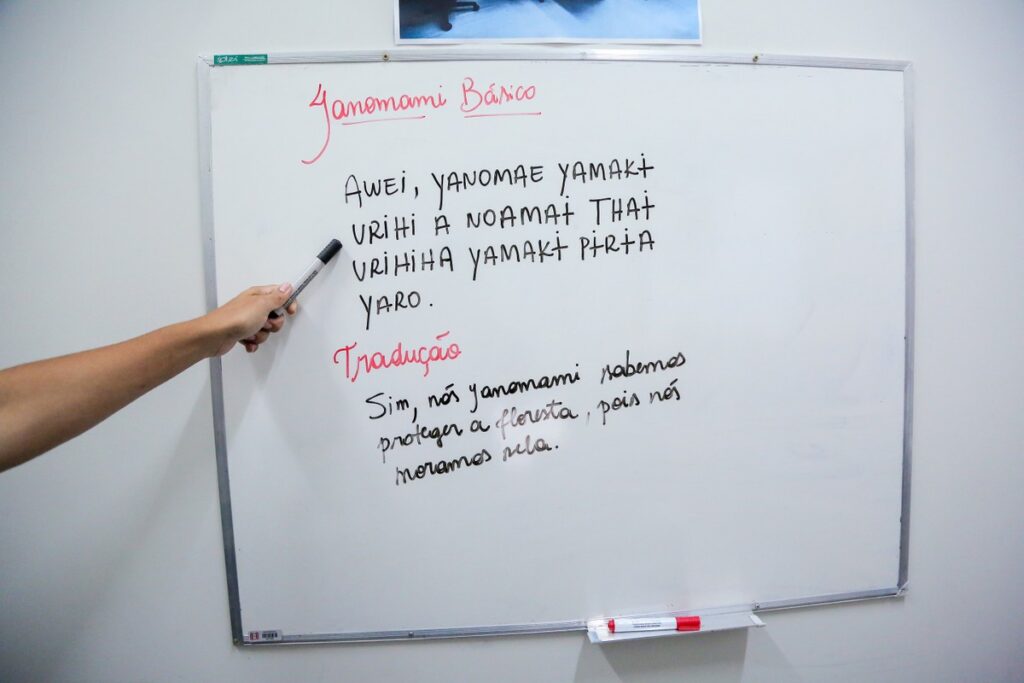 Yanomami Básico
AWEI, YANOMAE YAMAKɨ
URIHI A NOAMAɨ THAɨ
URIHIHA YAMAKɨ PɨRɨA
YARO.
Tradução
Sim, nós yanomami sabemos
proteger a floresta, pois nós
moramos nela.